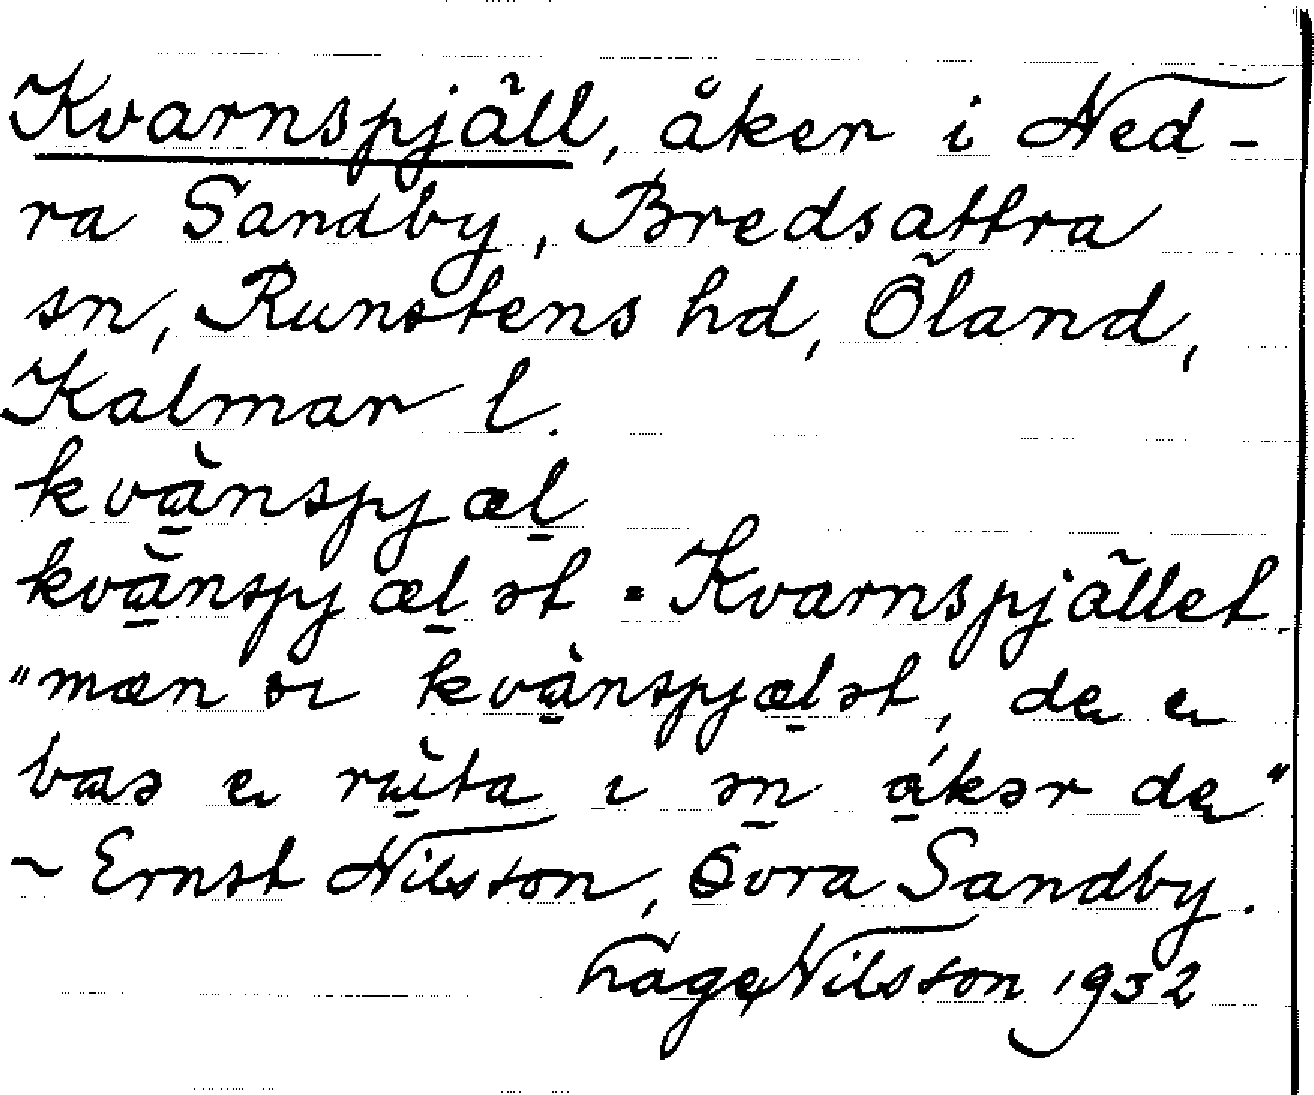 Kvarnspjäll, åker i Ned-
ra Sandby, Bredsättra
sn, Runstens hd, Öland,
Kalmar l.
kvà̱nspjæḻ
kvà̱nspjæḻət = Kvarnspjället.
"mæn sɪ kvà̱nspjæḻət, de e
bas e rù̱ta ɪ ən á̱kər de"
~ Ernst Nilsson, Övra Sandby.
Tage Nilsson 1932